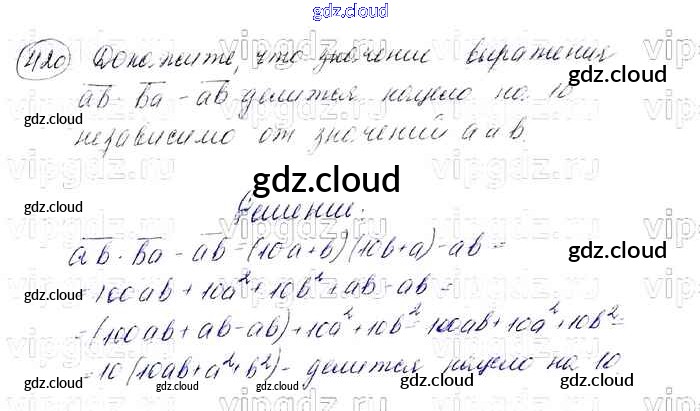 gdz.cloud
420 Докажите, что значение выражения
a̅b̅ · b̅a̅ - a̅b̅ делится нацело на 10
независимо от значений a и b.
gdz.cloud
gdz.cloud
gdz.cloud
gdz.cloud
gdz.cloud
gdz.cloud
Решение:
a̅b̅ · b̅a̅ - a̅b̅ = (10a+b)(10b+a) - ab =
= 100ab + 10a² + 10b² + ab - ab =
= (100ab + ab - ab) + 10a² + 10b² = 100ab + 10a² + 10b² =
= 10 (10ab + a² + b²) - делится нацело на 10
gdz.cloud
gdz.cloud
gdz.cloud
gdz.cloud
gdz.cloud